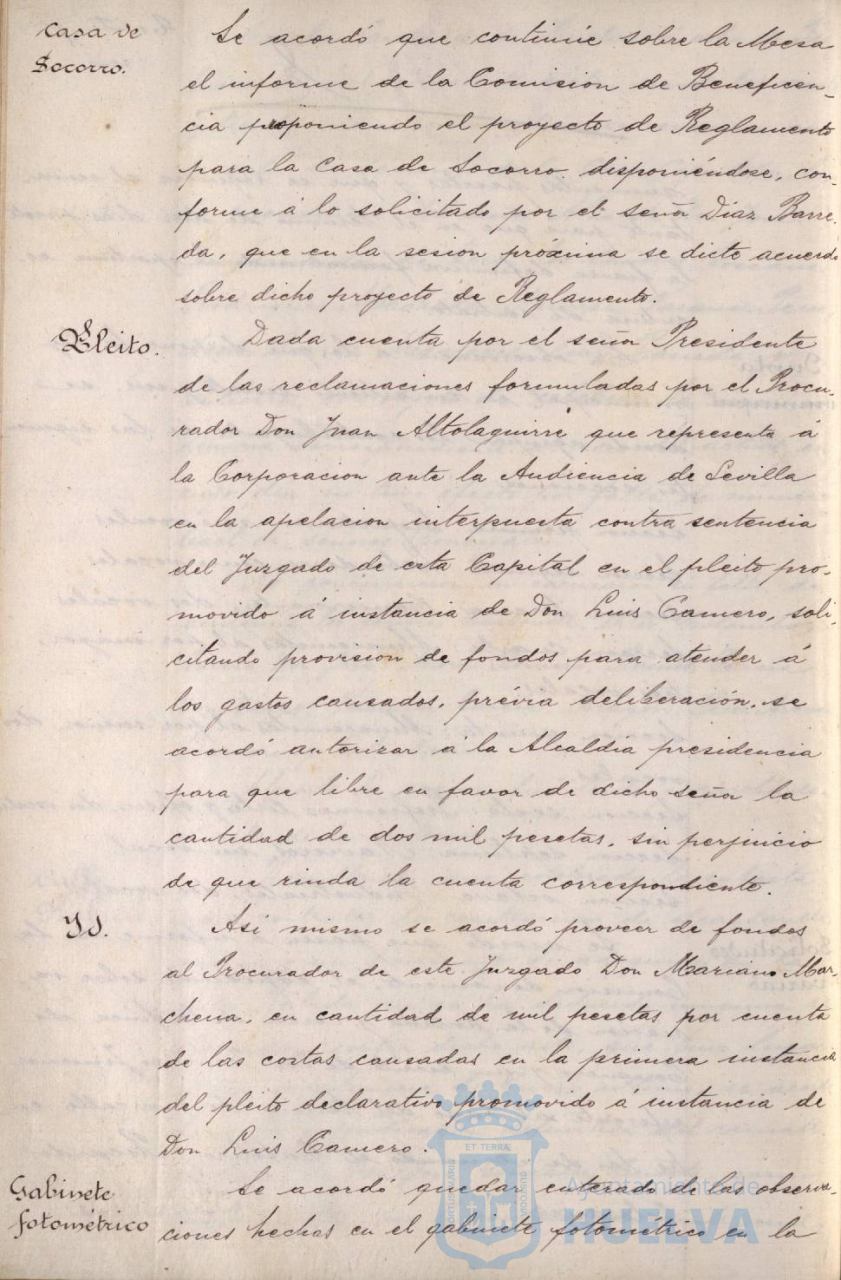 Casa de
Socorro.
Se acordó que continúe sobre la Mesa
el informe de la Comision de Beneficen-
cia proponiendo el proyecto de Reglamento
para la Casa de Socorro. disponiéndose, con-
forme á lo solicitado por el señor Diaz Barre-
da, que en la sesion próxima se dicte acuerdo
sobre dicho proyecto de Reglamento.
Pleito.
Dada cuenta por el señor Presidente
de las reclamaciones formuladas por el Procu-
rador Don Juan Altolaguirre que representa á
la Corporacion ante la Audiencia de Sevilla
en la apelacion interpuesta contra sentencia
del Juzgado de esta Capital en el pleito pro-
movido á instancia de Don Luis Camero, soli-
citando provision de fondos para atender á
los gastos causados, prévia deliberación, se
acordó autorizar á la Alcaldia presidencia
para que libre en favor de dicho señor la
cantidad de dos mil pesetas, sin perjuicio
de que rinda la cuenta correspondiente.
Yd.
Asi mismo se acordó proveer de fondos
al Procurador de este Juzgado Don Mariano Mar-
chena, en cantidad de mil pesetas por cuenta
de las costas causadas en la primera instancia
del pleito declarativo promovido á instancia de
Don Luis Camero.
Gabinete
fotométrico
Se acordó quedar enterado de las observa-
ciones hechas en el gabinete fotometrico en la
ET TERRÆ
Ayuntamiento de
HUELVA